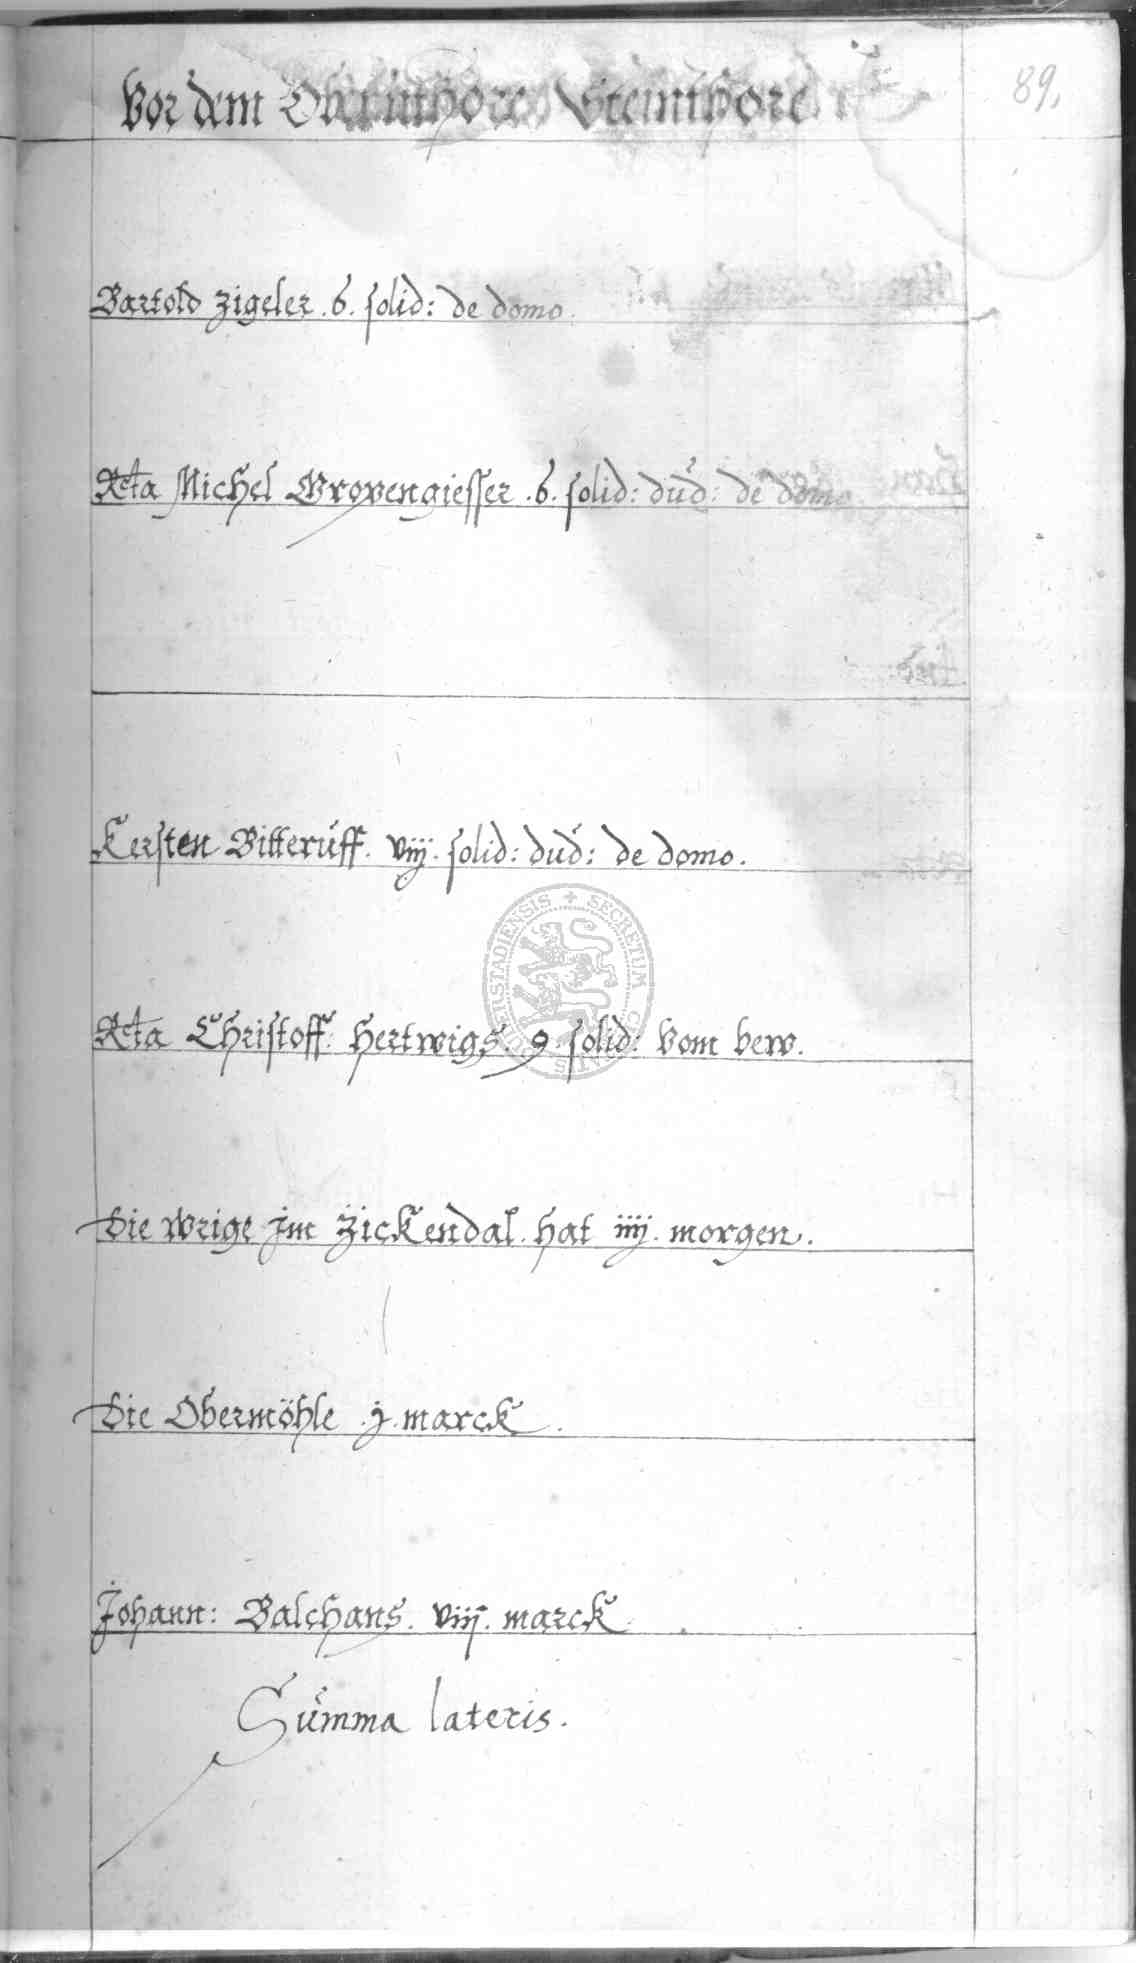 Vor dem Obernthore Steinthore
89.
Bartold Zigeler . 6. solid: de domo.
Rcta Michel Gropengiesser . 6. solid: dud: de domo.
Kersten Bitteruff. viij. solid: dud: de domo.
Rcta Christoff: Hertwigs. 9 solid: vom bew.
SECRETUM
Die Wrige Jm Zickendal. hat iiij. morgen.
Die Obermöhle . j. marck .
Johann: Balchans. viij. marck
Summa lateris.